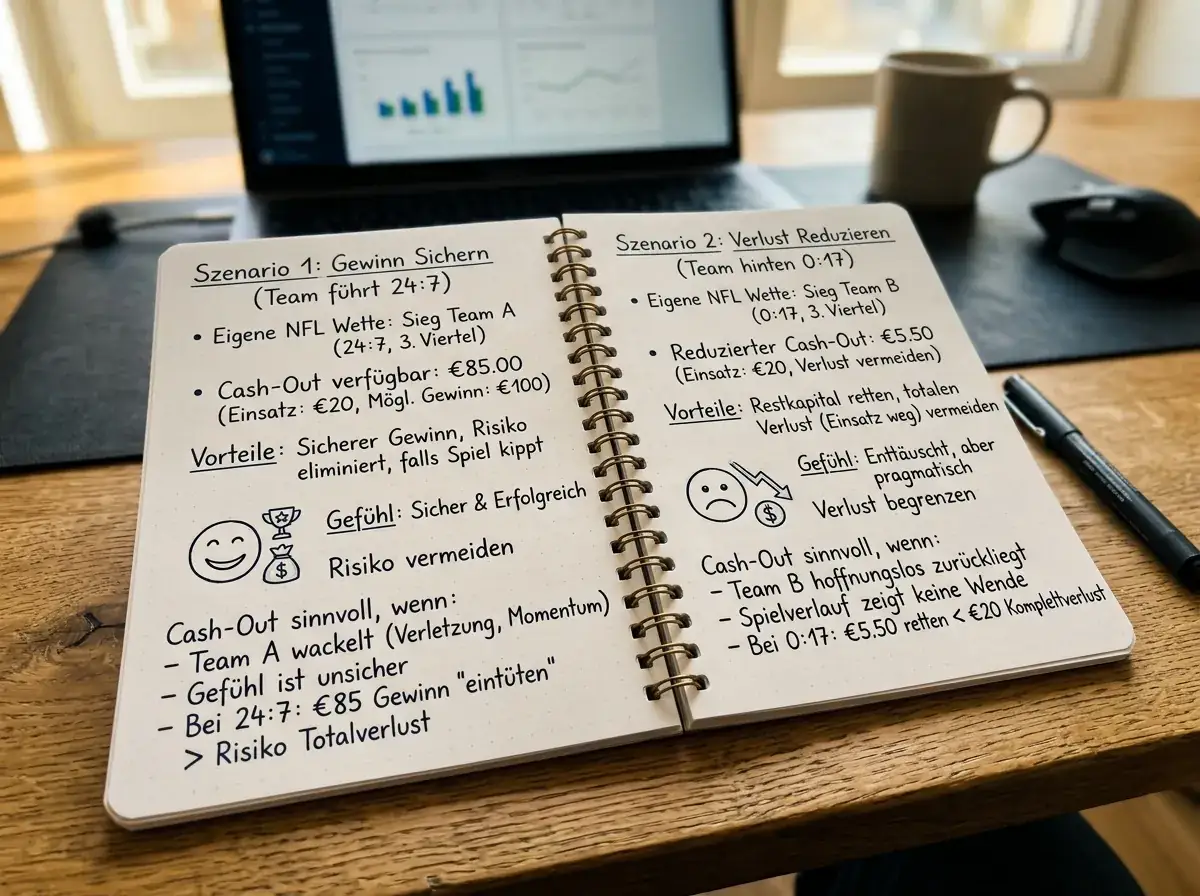 Szenario 1: Gewinn Sichern
(Team führt 24:7)
• Eigene NFL Wette: Sieg Team A
(24:7, 3. Viertel)
• Cash-Out verfügbar: €85.00
(Einsatz: €20, Mögl. Gewinn: €100)
Vorteile: Sicherer Gewinn, Risiko
eliminiert, falls Spiel kippt
Gefühl: Sicher & Erfolgreich
$
Risiko vermeiden
Cash-Out sinnvoll, wenn:
– Team A wackelt (Verletzung, Momentum)
– Gefühl ist unsicher
– Bei 24:7: €85 Gewinn "eintüten"
> Risiko Totalverlust
Szenario 2: Verlust Reduzieren
(Team hinten 0:17)
• Eigene NFL Wette: Sieg Team B
(0:17, 3. Viertel)
• Reduzierter Cash-Out: €5.50
(Einsatz: €20, Verlust vermeiden)
Vorteile: Restkapital retten, totalen
Verlust (Einsatz weg) vermeiden
Gefühl: Enttäuscht, aber
pragmatisch
$
Verlust begrenzen
Cash-Out sinnvoll, wenn:
– Team B hoffnungslos zurückliegt
– Spielverlauf zeigt keine Wende
– Bei 0:17: €5.50 retten < €20 Komplettverlust